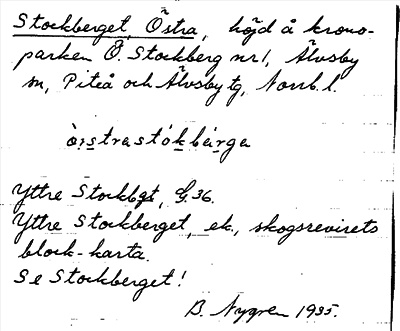 Stockberget, Östra, höjd å krono-
parken Ö. Stockberg nr 1, Älvsby
sn, Piteå och Älvsby tg, Norrb. l.
ò̤:strastókbä́rge
Yttre Stockbgt, G, 36.
Yttre Stockberget, ek., skogsrevirets
block-karta.
Se Stockberget!
B. Nygren 1935.